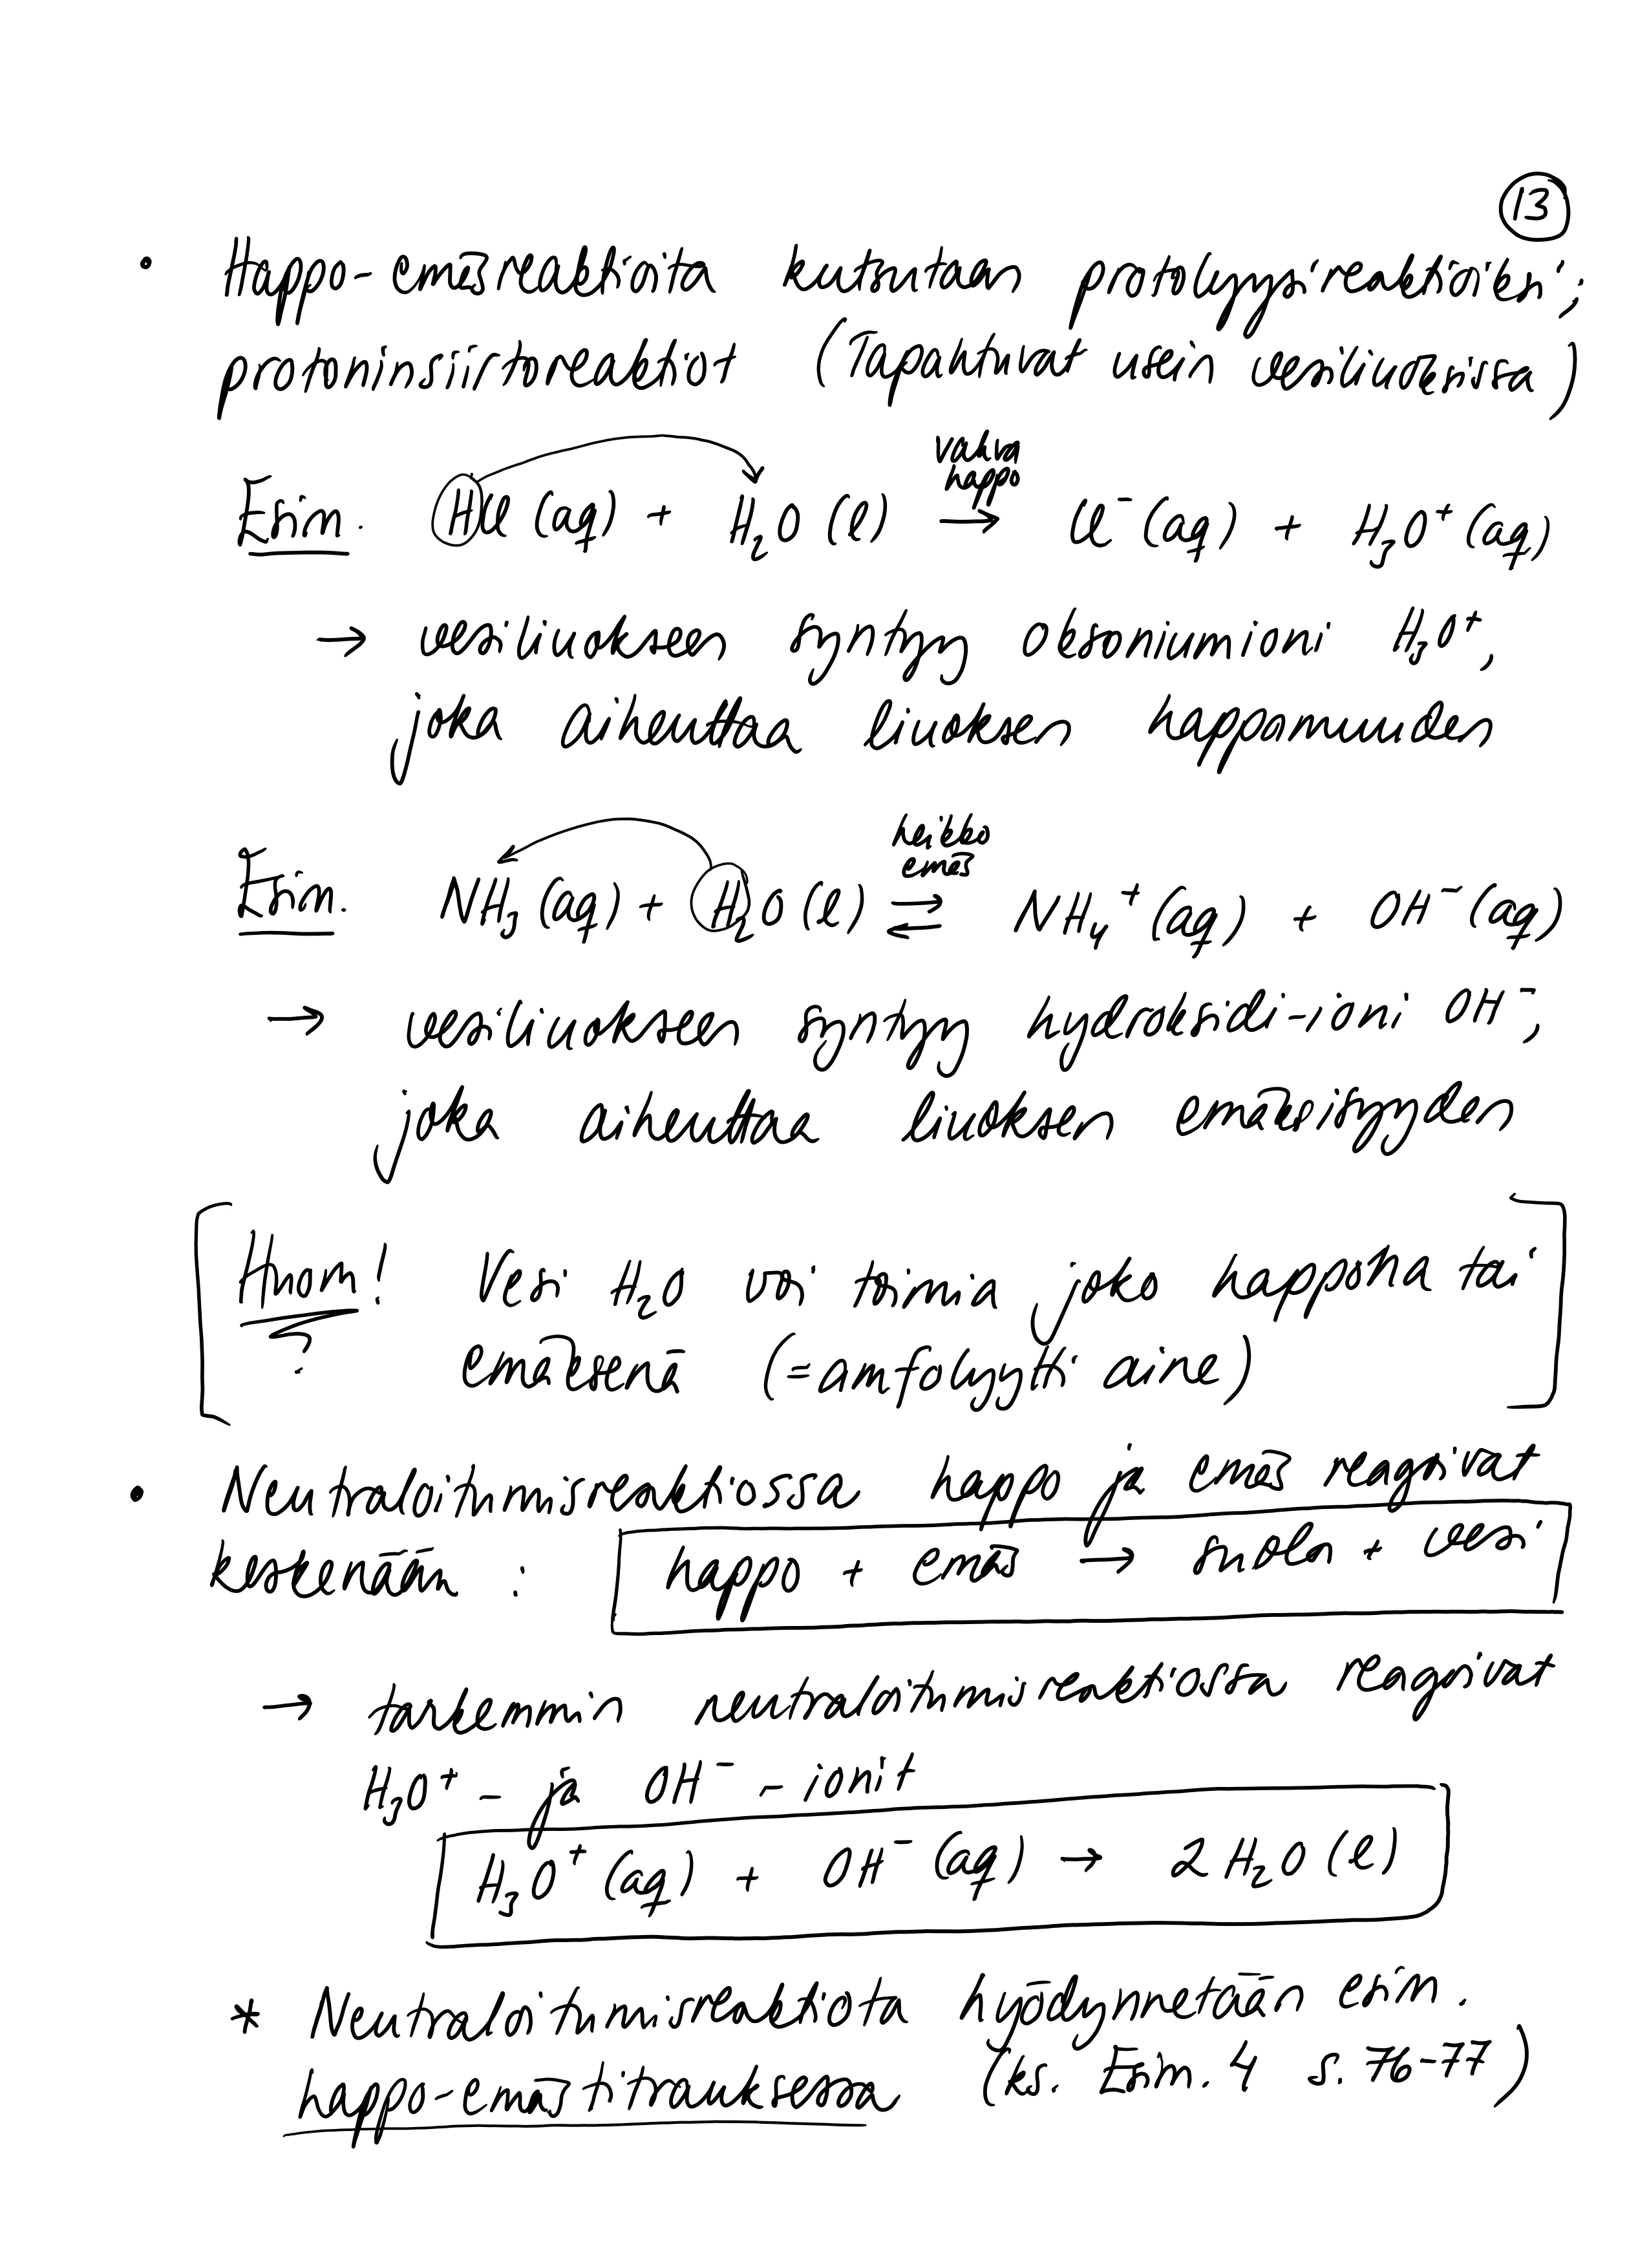 13
• Happo-emäsreaktioita kutsutaan protolyysireaktioiksi;
protoninsiirtoreaktiot (Tapahtuvat usein vesiliuoksissa)
vahva
happo
Esim. HCl (aq) + H₂O (l) → Cl⁻ (aq) + H₃O⁺ (aq)
→ vesiliuokseen syntyy oksoniumioni H₃O⁺,
joka aiheuttaa liuoksen happamuuden
heikko
emäs
Esim. NH₃ (aq) + H₂O (l) ⇌ NH₄⁺ (aq) + OH⁻ (aq)
→ vesiliuokseen syntyy hydroksidi-ioni OH⁻,
joka aiheuttaa liuoksen emäksisyyden
Huom! Vesi H₂O voi toimia joko happona tai
emäksenä (=amfolyytti aine)
• Neutraloitumisreaktiossa happo ja emäs reagoivat
keskenään : happo + emäs → suola + vesi
→ tarkemmin neutraloitumisreaktiossa reagoivat
H₃O⁺ - ja OH⁻ - ionit
H₃O⁺ (aq) + OH⁻ (aq) → 2 H₂O (l)
* Neutraloitumisreaktiota hyödynnetään esim.
happo-emästitrauksessa (ks. Esim. 4 s. 76-77)